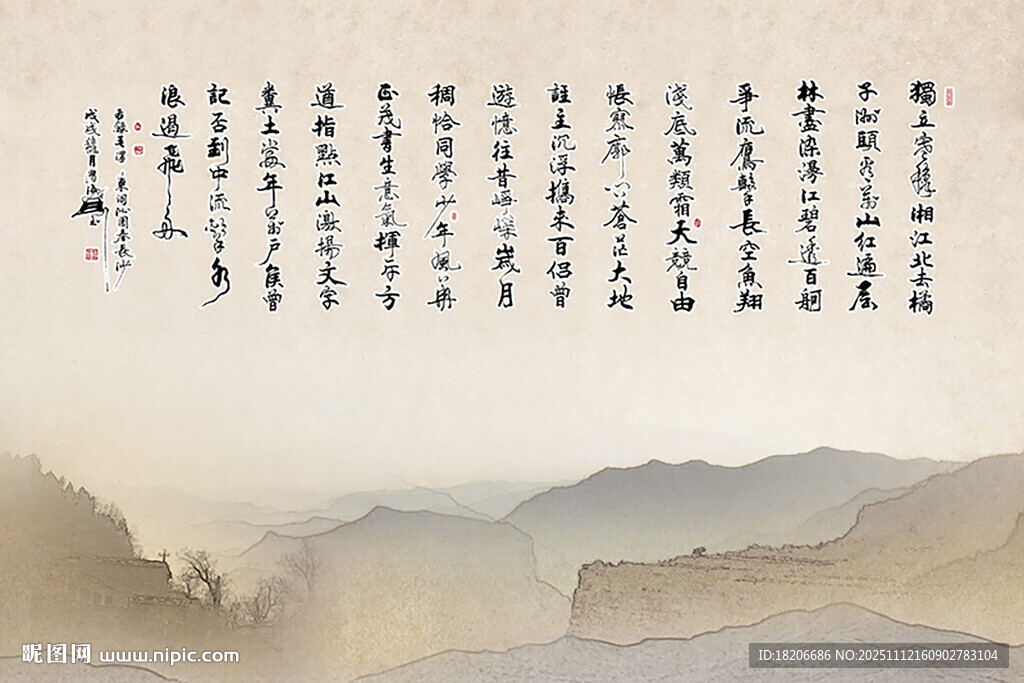 獨立寒穐湘江北去橘
子洲頭看万山红遍层
林盡染漫江碧透百舸
爭流鷹擊長空魚翔
淺底萬類霜天競自由
悵寥廓问蒼茫大地
誰主沉浮攜来百侣曾
遊憶往昔崢嶸嵗月
稠恰同學少年風华
正茂書生意氣揮斥方
遒指點江山激揚文字
糞土當年万户侯曾
記否到中流擊水
浪遏飛舟
東詞沁園春長沙
戊戌穐月
昵图网 www.nipic.com
ID:18206686 NO:20251112160902783104